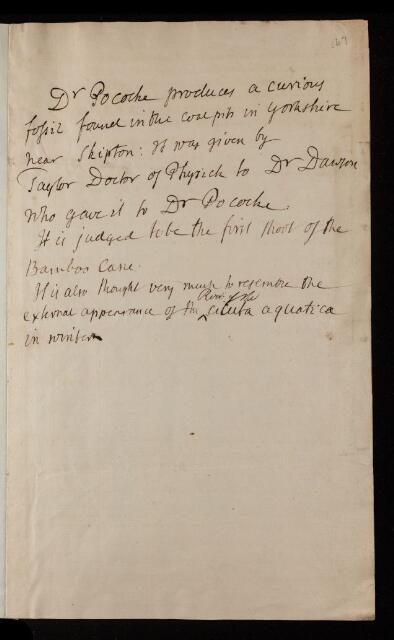 167
Dr Pococke produces a curious
fossil found in the coal pits in Yorkshire
near Skipton: It was given by
Taylor Doctor of Physick to Dr Dawson
who gave it to Dr Pococke.
It is judged to be the first shoot of the
Bamboo Cane.
It is also thought very much to resemble the
external appearance of the Root of the cicuta aquatica
in winter